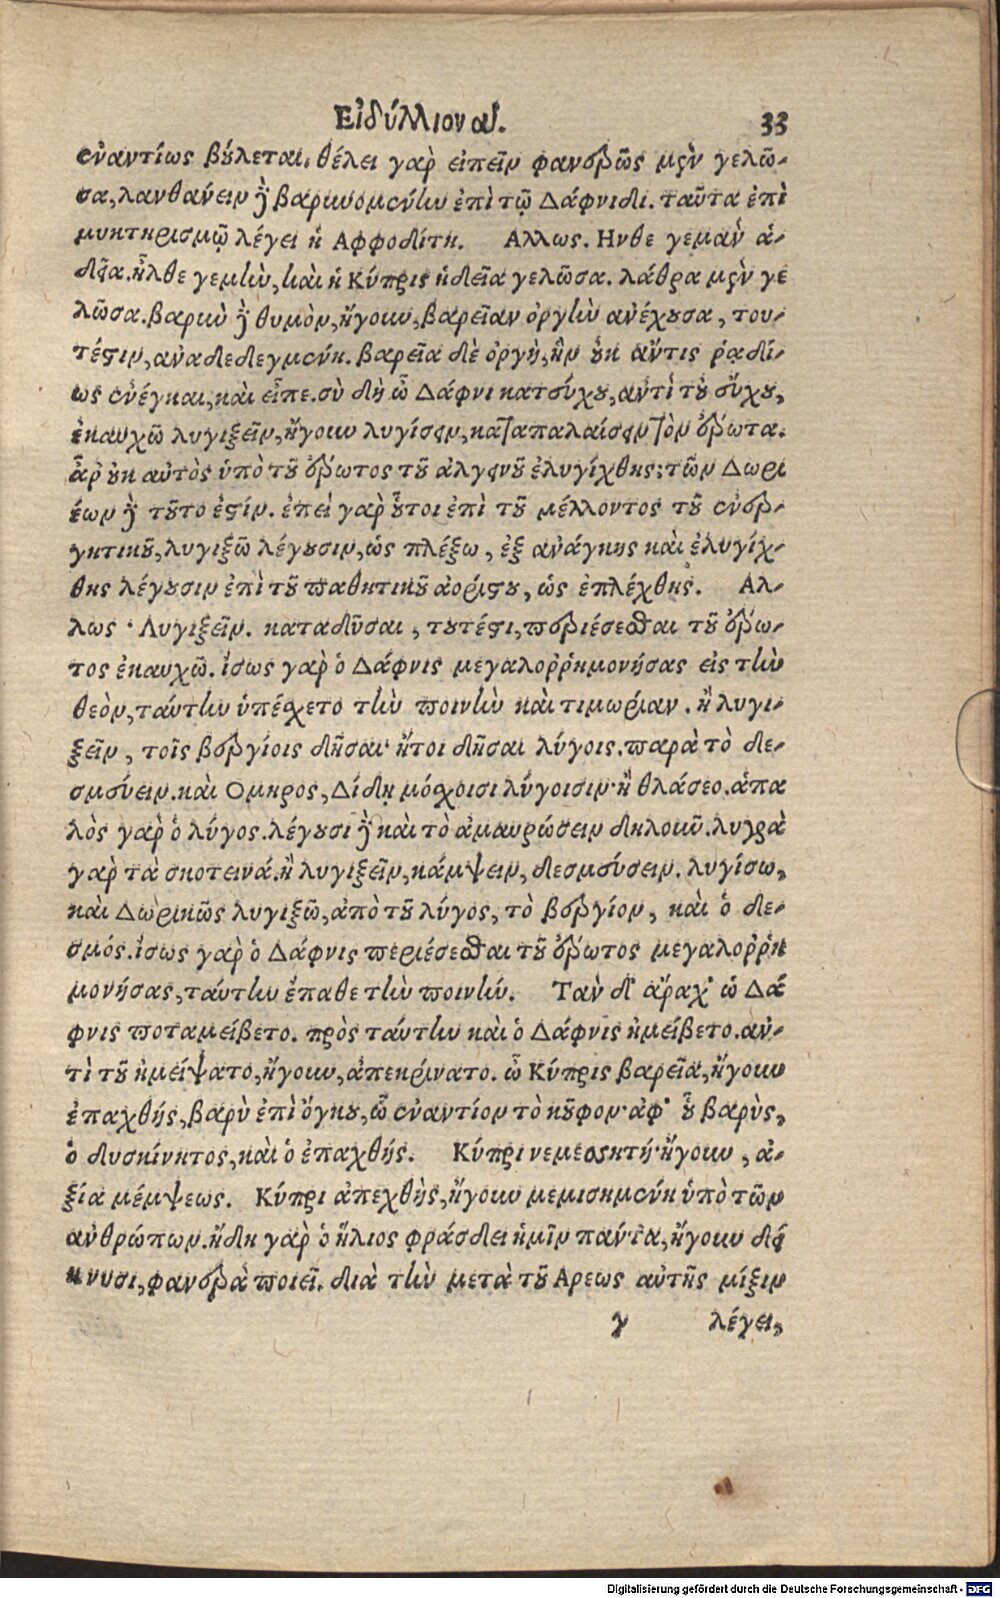 Εἰδύλλιον αʹ. 33
ἐναντίως βούλεται. θέλει γὰρ εἰπεῖν φανερῶς μὲν γελῶ-
σα, λανθάνειν δὲ βαρυνομένην ἐπὶ τῷ Δάφνιδι. ταῦτα ἐπὶ
μυκτηρισμῷ λέγει ἡ Αφροδίτη. Αλλως. Ηνθε γεμὰν ἁ-
δεῖα. ἦλθε γεμὴν, καὶ ἡ Κύπρις ἡδεῖα γελῶσα. λάθρα μὲν γε
λῶσα. βαρὺν δὲ θυμὸν, ἤγουν, βαρεῖαν ὀργὴν ἀνέχουσα, του-
τέστιν, ἀναδεδεγμένη. βαρεῖα δὲ ὀργὴ, ἣν οὐκ ἄν τις ῥᾳδί-
ως ἐνέγκαι, καὶ εἶπε. σὺ δὴ ὦ Δάφνι κατεύχου, ἀντὶ τοῦ εὔχου,
ἐκαυχῶ λυγιξεῖν, ἤγουν λυγίσειν, καταπαλαίσειν τὸν ἔρωτα.
ἆρ οὐκ αὐτὸς ὑπὸ τοῦ ἔρωτος τοῦ ἀλγεινοῦ ἐλυγίχθης; τῶν Δωρι
έων δὲ τοῦτο ἐστίν. ἐπεὶ γὰρ οὗτοι ἐπὶ τοῦ μέλλοντος τοῦ ἐνερ-
γητικοῦ, λυγιξῶ λέγουσιν, ὡς πλέξω, ἐξ ἀνάγκης καὶ ἐλυγίχ-
θης λέγουσιν ἐπὶ τοῦ παθητικοῦ ἀορίστου, ὡς ἐπλέχθης. Αλ-
λως. Λυγιξεῖν. καταδῦσαι, τουτέστι, περιέσεσθαι τοῦ ἔρω-
τος ἐκαυχῶ. ἴσως γὰρ ὁ Δάφνις μεγαλοῤῥημονήσας εἰς τὴν
θεὸν, ταύτην ὑπέσχετο τὴν ποινὴν καὶ τιμωρίαν. ἢ λυγι-
ξεῖν, τοῖς βεργίοις δῆσαι· ἤτοι δῆσαι λύγοις. παρὰ τὸ δε-
σμεύειν. καὶ Ομηρος, Δίδη μόσχοισι λύγοισιν· ἢ θλάσεο. ἁπα
λὸς γὰρ ὁ λύγος. λέγουσι δὲ καὶ τὸ ἀμαυρώσειν δηλοῦν. λυγρὰ
γὰρ τὰ σκοτεινά. ἢ λυγιξεῖν, κάμψειν, δεσμεύσειν. λυγίσω,
καὶ Δωρικῶς λυγιξῶ, ἀπὸ τοῦ λύγος, τὸ βεργίον, καὶ ὁ δε-
σμός. ἴσως γὰρ ὁ Δάφνις περιέσεσθαι τοῦ ἔρωτος μεγαλοῤῥη
μονήσας, ταύτην ἔπαθε τὴν ποινήν. Τὰν δ' ἄραχ' ὡ Δά
φνις ποταμείβετο. πρὸς ταύτην καὶ ὁ Δάφνις ἠμείβετο. ἀν-
τὶ τοῦ ἠμείψατο, ἤγουν, ἀπεκρίνατο. ὦ Κύπρις βαρεῖα, ἤγουν
ἐπαχθής, βαρὺ ἐπὶ ὄγκου, ᾧ ἐναντίον τὸ κοῦφον· ἀφ' οὗ βαρὺς,
ὁ δυσκίνητος, καὶ ὁ ἐπαχθής. Κύπρι νεμεσητή· ἤγουν, ἀ-
ξία μέμψεως. Κύπρι ἀπεχθὴς, ἤγουν μεμισημένη ὑπὸ τῶν
ἀνθρώπων. ἤδη γὰρ ὁ ἥλιος φράσδει ἡμῖν πάντα, ἤγουν δεί
κνυσι, φανερὰ ποιεῖ. διὰ τὴν μετὰ τοῦ Αρεως αὐτῆς μίξιν
γ λέγει,
Digitalisierung gefördert durch die Deutsche Forschungsgemeinschaft - DFG